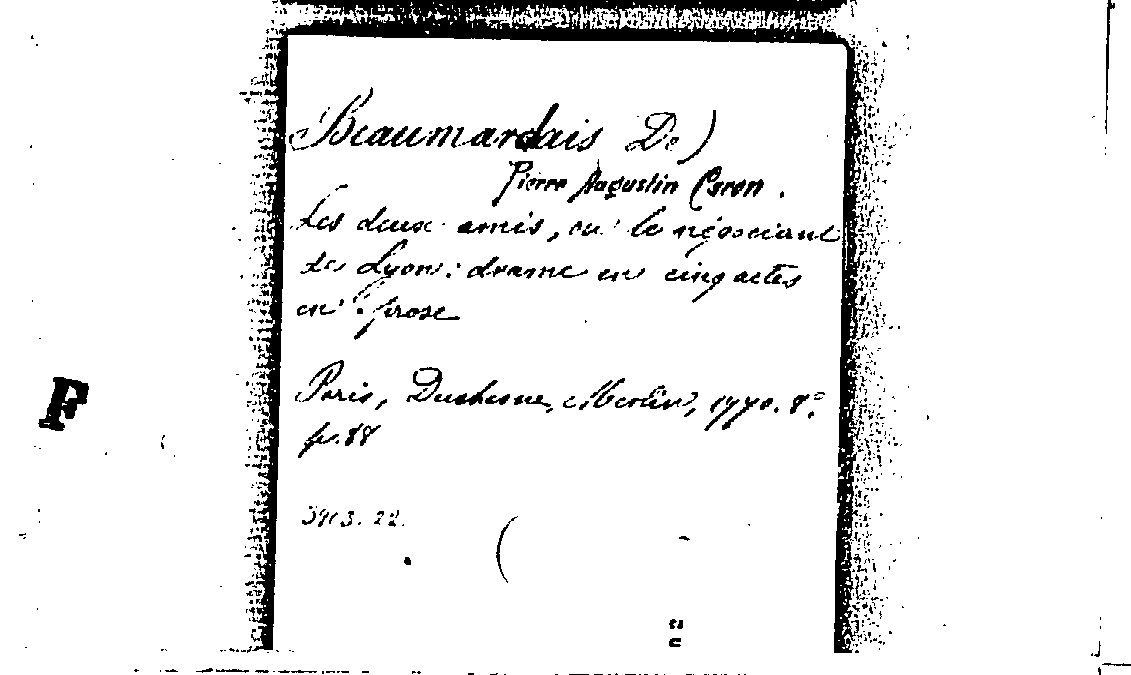 Beaumarchais De)
Pierre Augustin Caron.
Les deux amis, ou le négociant
de Lyon: drame en cinq actes
en prose
Paris, Duchesne, Merlin, 1770. 8°.
p. 88
F
3913.22.
(